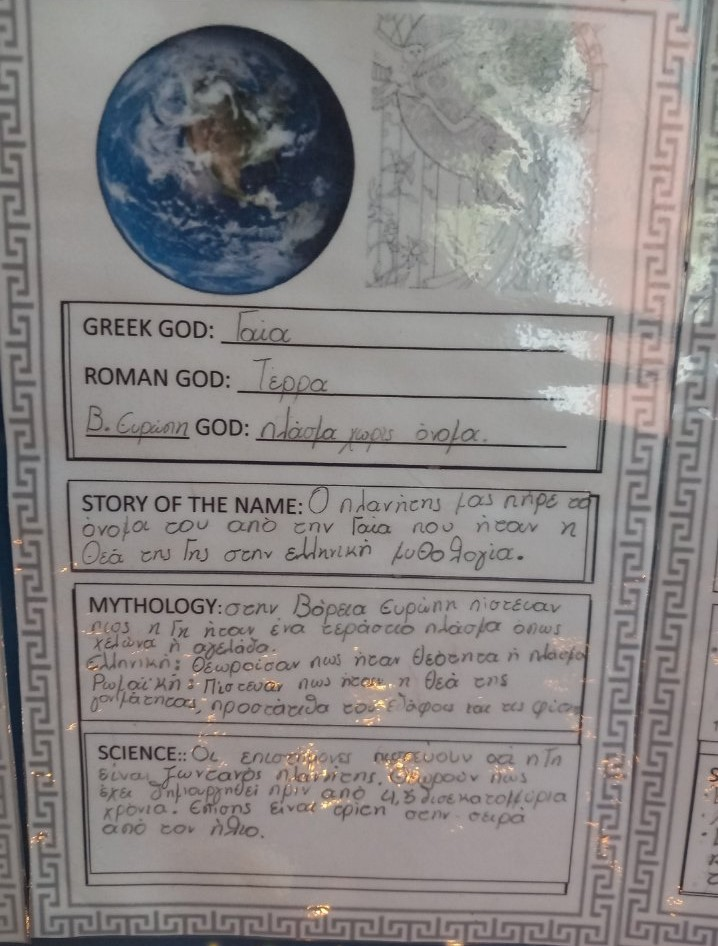 GREEK GOD: Γαία
ROMAN GOD: Τέρρα
Β. Ευρώπη GOD: πλάσμα χωρίς όνομα.
STORY OF THE NAME: Ο πλανήτης μας πήρε το
όνομα του από την Γαία που ήταν η
Θεά της Γης στην ελληνική μυθολογία.
MYTHOLOGY: στην Βόρεια Ευρώπη πίστευαν
πως η Γη ήταν ένα τεράστιο πλάσμα όπως
χελώνα ή αγελάδα.
Ελληνική: Θεωρούσαν πως ήταν θεότητα ή πλάσμα
Ρωμαϊκή: Πίστευαν πως ήταν η θεά της
γονιμότητας, προστάτιδα του εδάφους και της φύσης
SCIENCE:: Οι επιστήμονες πιστεύουν οτι η Γη
είναι ζωντανός πλανήτης. Θεωρούν πως
έχει δημιουργηθεί πριν από 4,5 δισεκατομμύρια
χρόνια. Επίσης είναι τρίτη στην σειρά
από τον ήλιο.